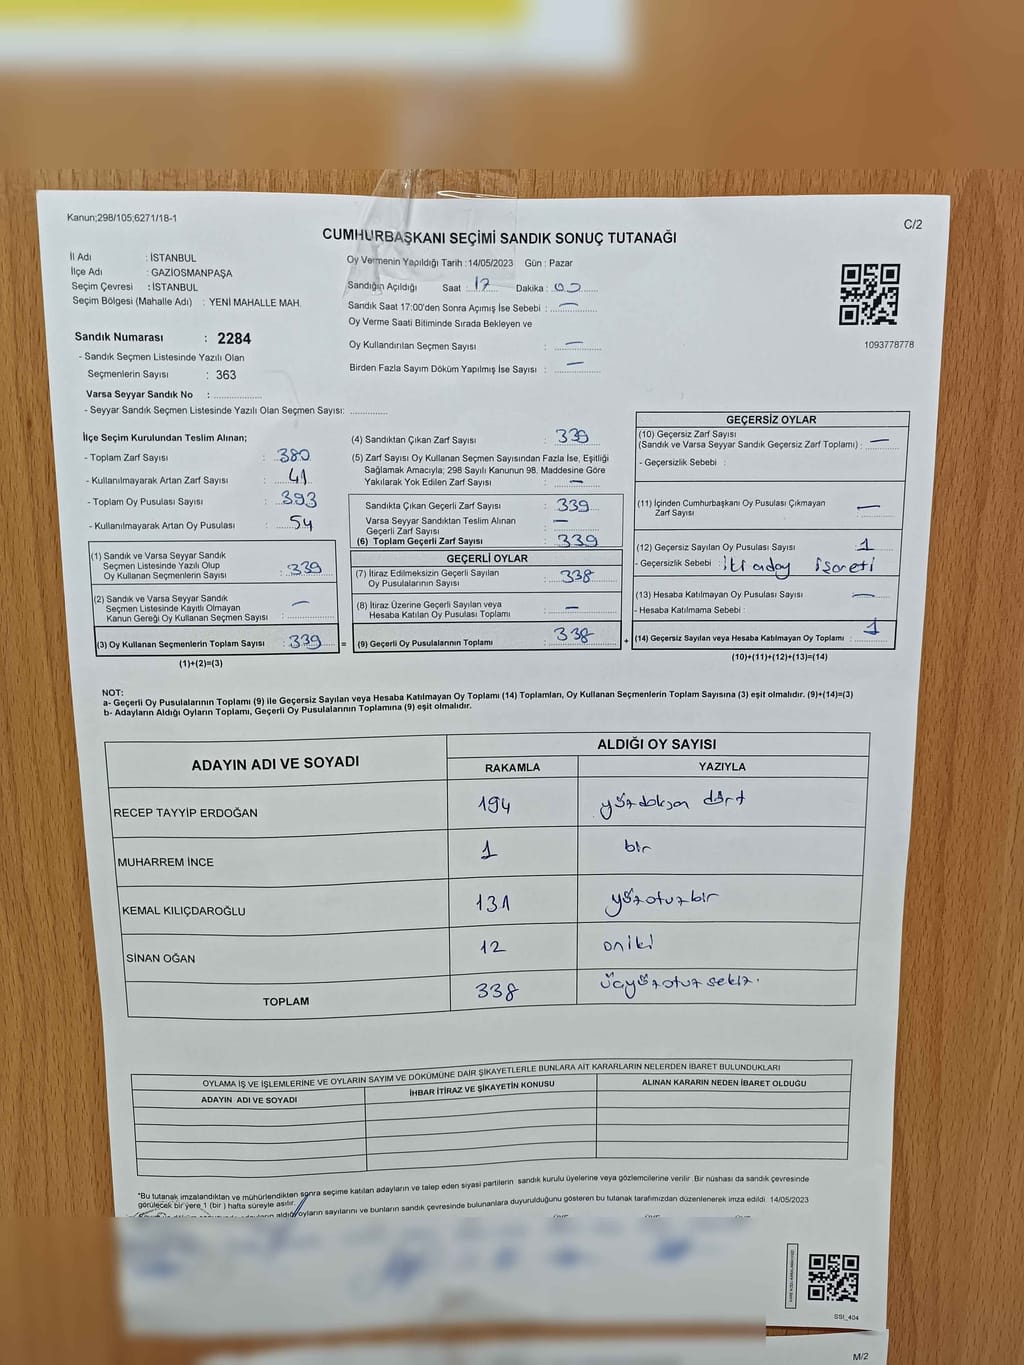 Kanun;298/105;6271/18-1
C/2
CUMHURBAŞKANI SEÇİMİ SANDIK SONUÇ TUTANAĞI
İl Adı : İSTANBUL
İlçe Adı : GAZİOSMANPAŞA
Seçim Çevresi : İSTANBUL
Seçim Bölgesi (Mahalle Adı) : YENİ MAHALLE MAH.
Sandık Numarası : 2284
- Sandık Seçmen Listesinde Yazılı Olan
Seçmenlerin Sayısı : 363
Varsa Seyyar Sandık No :
- Seyyar Sandık Seçmen Listesinde Yazılı Olan Seçmen Sayısı:
Oy Vermenin Yapıldığı Tarih :14/05/2023 Gün : Pazar
Sandığın Açıldığı Saat : 17 Dakika : 00
Sandık Saat 17:00'den Sonra Açımış İse Sebebi : —
Oy Verme Saati Bitiminde Sırada Bekleyen ve
Oy Kullandırılan Seçmen Sayısı : —
Birden Fazla Sayım Döküm Yapılmış İse Sayısı : —
1093778778
İlçe Seçim Kurulundan Teslim Alınan;
- Toplam Zarf Sayısı : 380
- Kullanılmayarak Artan Zarf Sayısı : 41
- Toplam Oy Pusulası Sayısı : 393
- Kullanılmayarak Artan Oy Pusulası : 54
(1) Sandık ve Varsa Seyyar Sandık
Seçmen Listesinde Yazılı Olup
Oy Kullanan Seçmenlerin Sayısı : 339
(2) Sandık ve Varsa Seyyar Sandık
Seçmen Listesinde Kayıtlı Olmayan
Kanun Gereği Oy Kullanan Seçmen Sayısı : —
(3) Oy Kullanan Seçmenlerin Toplam Sayısı : 339 =
(1)+(2)=(3)
(4) Sandıktan Çıkan Zarf Sayısı : 339
(5) Zarf Sayısı Oy Kullanan Seçmen Sayısından Fazla İse, Eşitliği
Sağlamak Amacıyla; 298 Sayılı Kanunun 98. Maddesine Göre
Yakılarak Yok Edilen Zarf Sayısı : —
Sandıkta Çıkan Geçerli Zarf Sayısı : 339
Varsa Seyyar Sandıktan Teslim Alınan
Geçerli Zarf Sayısı : —
(6) Toplam Geçerli Zarf Sayısı : 339
GEÇERLİ OYLAR
(7) İtiraz Edilmeksizin Geçerli Sayılan
Oy Pusulalarının Sayısı : 338
(8) İtiraz Üzerine Geçerli Sayılan veya
Hesaba Katılan Oy Pusulası Toplamı : —
(9) Geçerli Oy Pusulalarının Toplamı : 338 +
GEÇERSİZ OYLAR
(10) Geçersiz Zarf Sayısı
(Sandık ve Varsa Seyyar Sandık Geçersiz Zarf Toplamı) : —
- Geçersizlik Sebebi :
(11) İçinden Cumhurbaşkanı Oy Pusulası Çıkmayan
Zarf Sayısı : —
(12) Geçersiz Sayılan Oy Pusulası Sayısı : 1
- Geçersizlik Sebebi : iki aday işareti
(13) Hesaba Katılmayan Oy Pusulası Sayısı : —
- Hesaba Katılmama Sebebi :
(14) Geçersiz Sayılan veya Hesaba Katılmayan Oy Toplamı : 1
(10)+(11)+(12)+(13)=(14)
NOT:
a- Geçerli Oy Pusulalarının Toplamı (9) ile Geçersiz Sayılan veya Hesaba Katılmayan Oy Toplamı (14) Toplamları, Oy Kullanan Seçmenlerin Toplam Sayısına (3) eşit olmalıdır. (9)+(14)=(3)
b- Adayların Aldığı Oyların Toplamı, Geçerli Oy Pusulalarının Toplamına (9) eşit olmalıdır.
ADAYIN ADI VE SOYADI
ALDIĞI OY SAYISI
RAKAMLA YAZIYLA
RECEP TAYYİP ERDOĞAN 194 yüzdoksan dört
MUHARREM İNCE 1 bir
KEMAL KILIÇDAROĞLU 131 yüzotuzbir
SİNAN OĞAN 12 oniki
TOPLAM 338 üçyüzotuz sekiz.
OYLAMA İŞ VE İŞLEMLERİNE VE OYLARIN SAYIM VE DÖKÜMÜNE DAİR ŞİKAYETLERLE BUNLARA AİT KARARLARIN NELERDEN İBARET BULUNDUKLARI
ADAYIN ADI VE SOYADI İHBAR İTİRAZ VE ŞİKAYETİN KONUSU ALINAN KARARIN NEDEN İBARET OLDUĞU
"Bu tutanak imzalandıktan ve mühürlendikten sonra seçime katılan adayların ve talep eden siyasi partilerin sandık kurulu üyelerine veya gözlemcilerine verilir .Bir nüshası da sandık çevresinde
görülecek bir yere 1 (bir ) hafta süreyle asılır.
aldığı oyların sayılarını ve bunların sandık çevresinde bulunanlara duyurulduğunu gösteren bu tutanak tarafımızdan düzenlenerek imza edildi. 14/05/2023
SSI_404
M/2